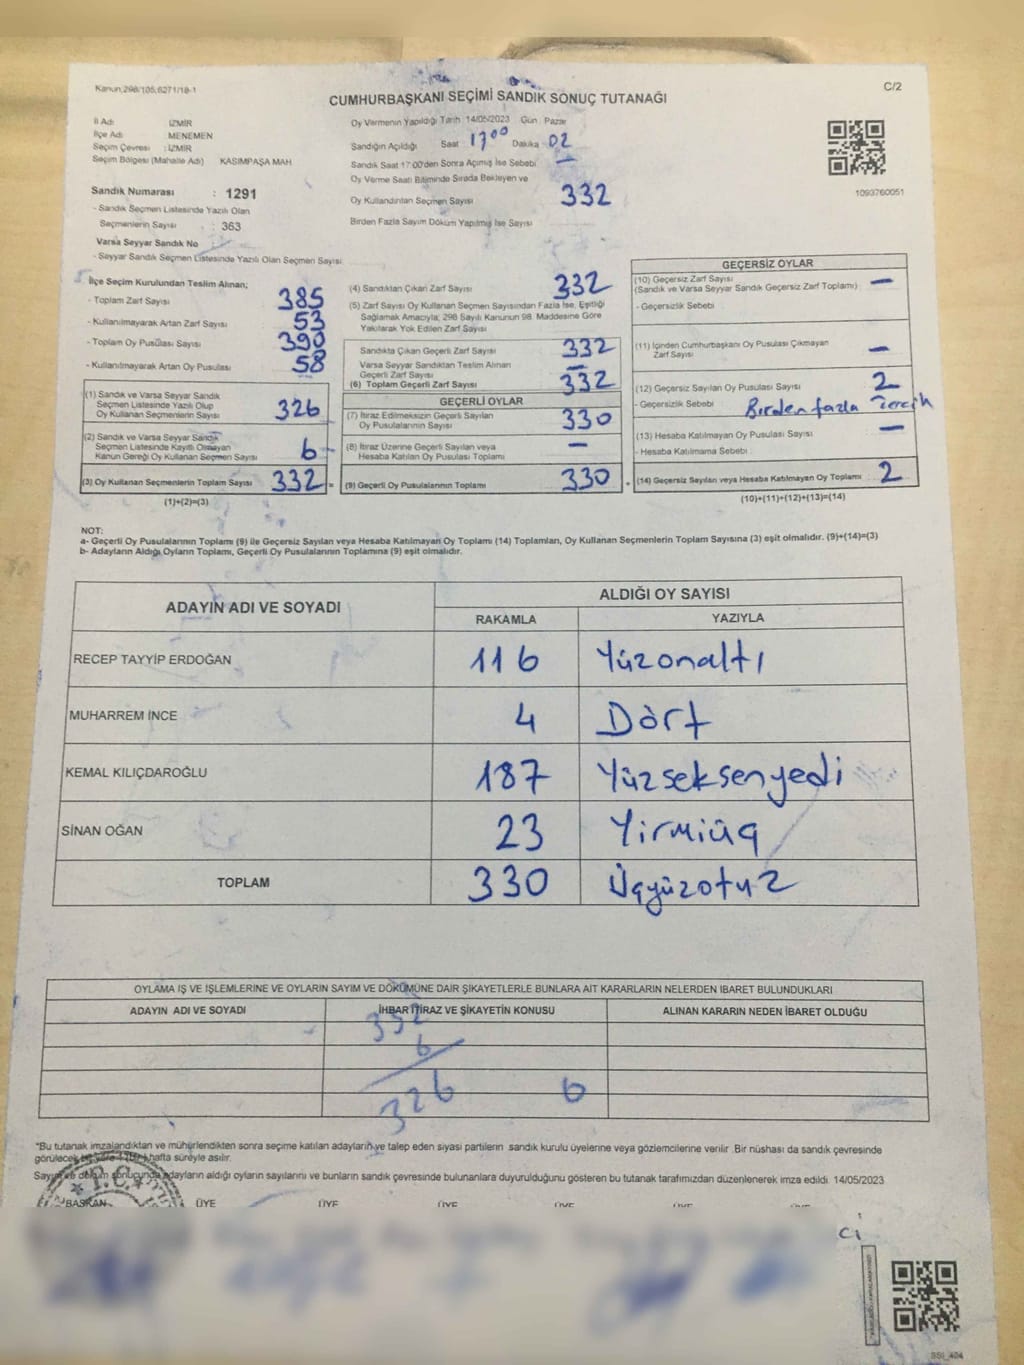 Kanun,298/105,6271/18-1
C/2
CUMHURBAŞKANI SEÇİMİ SANDIK SONUÇ TUTANAĞI
İl Adı : İZMİR
İlçe Adı : MENEMEN
Seçim Çevresi : İZMİR
Seçim Bölgesi (Mahalle Adı) KASIMPAŞA MAH
Sandık Numarası : 1291
- Sandık Seçmen Listesinde Yazılı Olan
Seçmenlerin Sayısı : 363
Varsa Seyyar Sandık No
- Seyyar Sandık Seçmen Listesinde Yazılı Olan Seçmen Sayısı:
Oy Vermenin Yapıldığı Tarih 14/05/2023 Gün : Pazar
Sandığın Açıldığı Saat : 17⁰⁰ Dakika : 02
Sandık Saat 17:00'den Sonra Açılmış İse Sebebi : —
Oy Verme Saati Bitiminde Sırada Bekleyen ve
Oy Kullandırılan Seçmen Sayısı 332
Birden Fazla Sayım Döküm Yapılmış İse Sayısı :
1093760051
İlçe Seçim Kurulundan Teslim Alınan;
- Toplam Zarf Sayısı 385
- Kullanılmayarak Artan Zarf Sayısı 53
- Toplam Oy Pusulası Sayısı 390
- Kullanılmayarak Artan Oy Pusulası 58
(1) Sandık ve Varsa Seyyar Sandık
Seçmen Listesinde Yazılı Olup
Oy Kullanan Seçmenlerin Sayısı 326
(2) Sandık ve Varsa Seyyar Sandık
Seçmen Listesinde Kayıtlı Olmayan
Kanun Gereği Oy Kullanan Seçmen Sayısı 6
(3) Oy Kullanan Seçmenlerin Toplam Sayısı 332 =
(1)+(2)=(3)
(4) Sandıktan Çıkan Zarf Sayısı 332
(5) Zarf Sayısı Oy Kullanan Seçmen Sayısından Fazla İse, Eşitliği
Sağlamak Amacıyla; 298 Sayılı Kanunun 98. Maddesine Göre
Yakılarak Yok Edilen Zarf Sayısı —
Sandıkta Çıkan Geçerli Zarf Sayısı 332
Varsa Seyyar Sandıktan Teslim Alınan
Geçerli Zarf Sayısı —
(6) Toplam Geçerli Zarf Sayısı 332
GEÇERLİ OYLAR
(7) İtiraz Edilmeksizin Geçerli Sayılan
Oy Pusulalarının Sayısı 330
(8) İtiraz Üzerine Geçerli Sayılan veya
Hesaba Katılan Oy Pusulası Toplamı —
(9) Geçerli Oy Pusulalarının Toplamı 330 +
GEÇERSİZ OYLAR
(10) Geçersiz Zarf Sayısı
(Sandık ve Varsa Seyyar Sandık Geçersiz Zarf Toplamı) —
- Geçersizlik Sebebi :
(11) İçinden Cumhurbaşkanı Oy Pusulası Çıkmayan
Zarf Sayısı —
(12) Geçersiz Sayılan Oy Pusulası Sayısı 2
- Geçersizlik Sebebi : Birden fazla Tercih
(13) Hesaba Katılmayan Oy Pusulası Sayısı —
- Hesaba Katılmama Sebebi :
(14) Geçersiz Sayılan veya Hesaba Katılmayan Oy Toplamı 2
(10)+(11)+(12)+(13)=(14)
NOT:
a- Geçerli Oy Pusulalarının Toplamı (9) ile Geçersiz Sayılan veya Hesaba Katılmayan Oy Toplamı (14) Toplamları, Oy Kullanan Seçmenlerin Toplam Sayısına (3) eşit olmalıdır. (9)+(14)=(3)
b- Adayların Aldığı Oyların Toplamı, Geçerli Oy Pusulalarının Toplamına (9) eşit olmalıdır.
ADAYIN ADI VE SOYADI ALDIĞI OY SAYISI
RAKAMLA YAZIYLA
RECEP TAYYİP ERDOĞAN 116 Yüzonaltı
MUHARREM İNCE 4 Dört
KEMAL KILIÇDAROĞLU 187 Yüzseksenyedi
SİNAN OĞAN 23 Yirmiüç
TOPLAM 330 Üçyüzotuz
OYLAMA İŞ VE İŞLEMLERİNE VE OYLARIN SAYIM VE DÖKÜMÜNE DAİR ŞİKAYETLERLE BUNLARA AİT KARARLARIN NELERDEN İBARET BULUNDUKLARI
ADAYIN ADI VE SOYADI İHBAR İTİRAZ VE ŞİKAYETİN KONUSU ALINAN KARARIN NEDEN İBARET OLDUĞU
332
6
326 6
"Bu tutanak imzalandıktan ve mühürlendikten sonra seçime katılan adayların ve talep eden siyasi partilerin sandık kurulu üyelerine veya gözlemcilerine verilir. Bir nüshası da sandık çevresinde
hafta süreyle asılır.
Sayım ve döküm sonucunda adayların aldığı oyların sayılarını ve bunların sandık çevresinde bulunanlara duyurulduğunu gösteren bu tutanak tarafımızdan düzenlenerek imza edildi. 14/05/2023
T.C.
BAŞKAN ÜYE ÜYE ÜYE ÜYE ÜYE